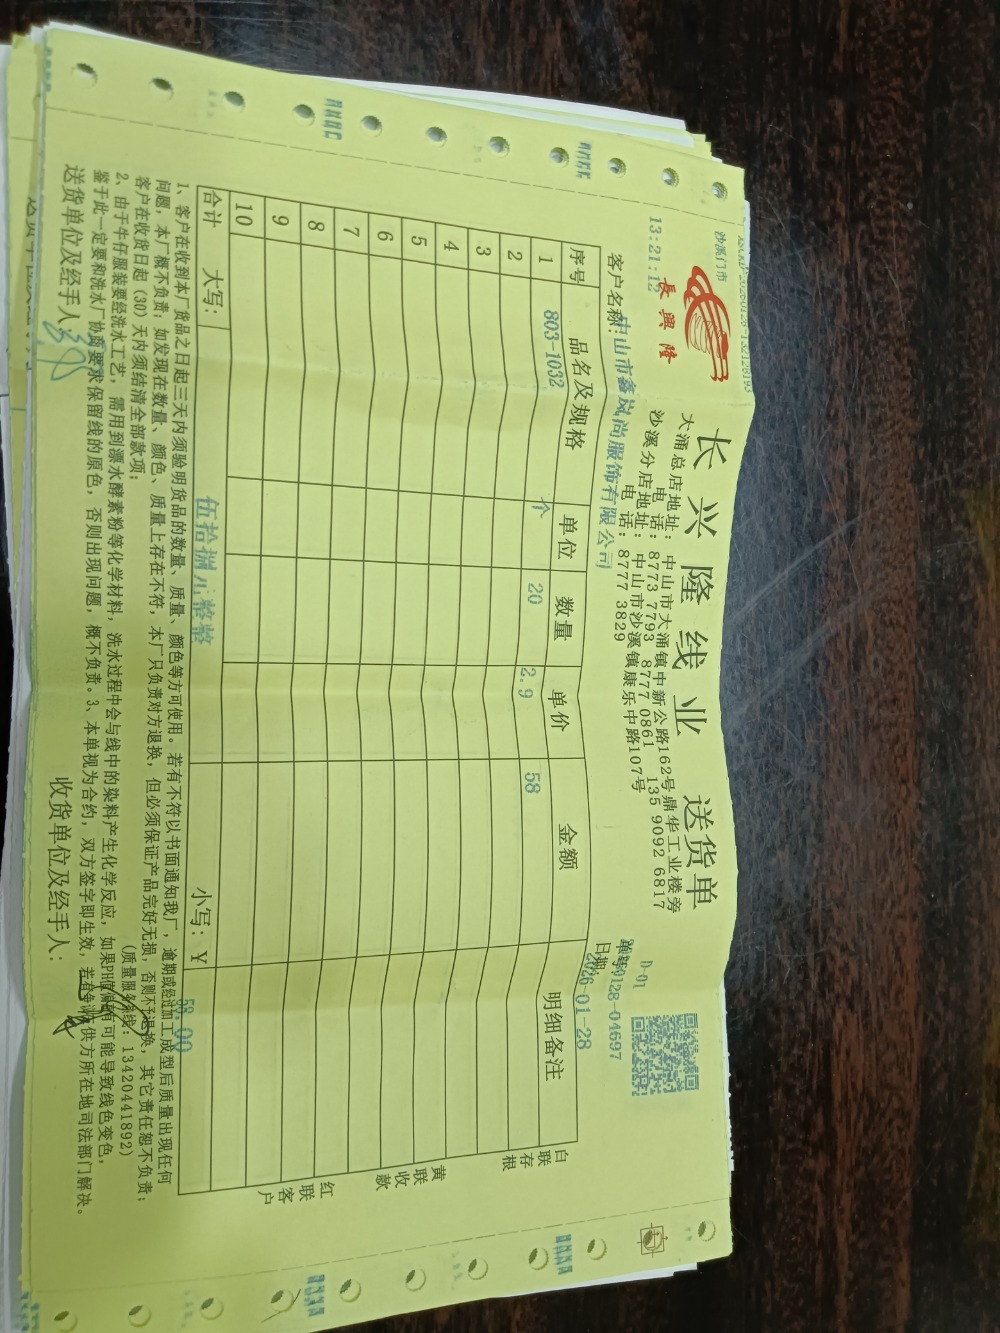 沙溪门市
13:21:12
長興隆
长兴隆线业 送货单
大涌总店地址：中山市大涌镇中新公路162号鼎华工业楼旁
电 话：8773 7793 8777 0861 135 9092 6817
沙溪分店地址：中山市沙溪镇康乐中路107号
电 话：8777 3829
D-01
单号：
0128-04697
客户名称：中山市鑫岚尚服饰有限公司
日期：2026-01-28
序号 品名及规格 单位 数量 单价 金额 明细备注
1 803-1032 个 20 2.9 58
2
3
4
5
6
7
8
9
10
合计 大写：伍拾捌元整 小写：¥ 58.00
白联存根
黄联收款
红联客户
1、客户在收到本厂货品之日起三天内须验明货品的数量、质量、颜色等方可使用。若有不符以书面通知我厂，逾期或经过加工成型后质量出现任何
问题，本厂概不负责；如发现在数量、颜色、质量上存在不符，本厂只负责对方退换，但必须保证产品完好无损，否则不予退换，其它责任恕不负责；
客户在收货日起（30）天内须结清全部款项；
（质量服务热线：13420441892）
2、由于牛仔服装要经洗水工艺，需用到漂水酵素粉等化学材料，洗水过程中会与线中的染料产生化学反应，如果PH值偏酸有可能导致线色变色，
鉴于此一定要和洗水厂协商要求保留线的原色，否则出现问题，概不负责。3、本单视为合约，双方签字即生效，若有争议在供方所在地司法部门解决。
送货单位及经手人： 收货单位及经手人：